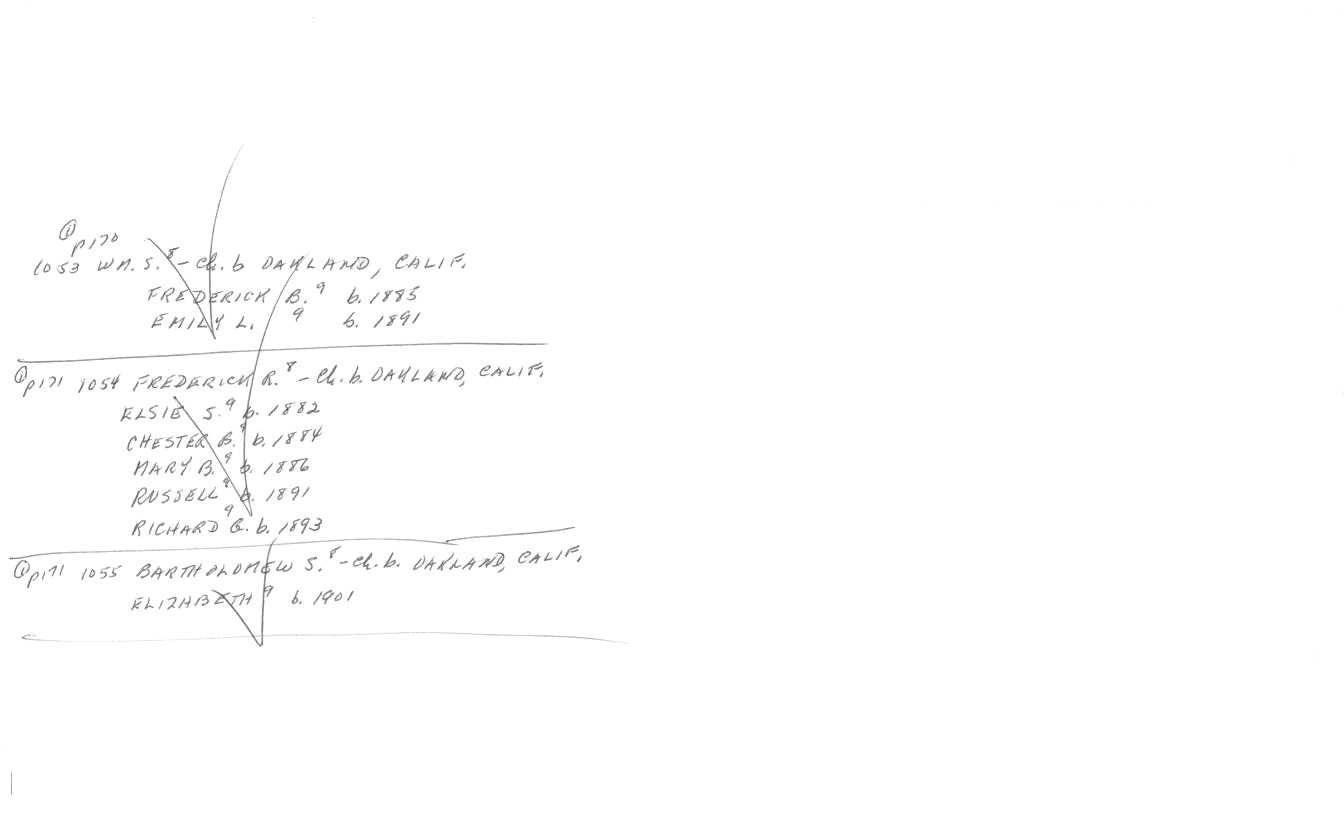 ① p170
1053 WM. S.⁸ – Ch. b OAKLAND, CALIF.
FREDERICK B.⁹ b. 1885
EMILY L. ⁹ b. 1891
① p171 1054 FREDERICK R.⁸ – Ch. b. OAKLAND, CALIF.
ELSIE S.⁹ b. 1882
CHESTER B.⁹ b. 1884
MARY B.⁹ b. 1886
RUSSELL⁹ b. 1891
RICHARD⁹ G. b. 1893
① p171 1055 BARTHOLOMEW S.⁸ – Ch. b. OAKLAND, CALIF.
ELIZABETH⁹ b. 1901